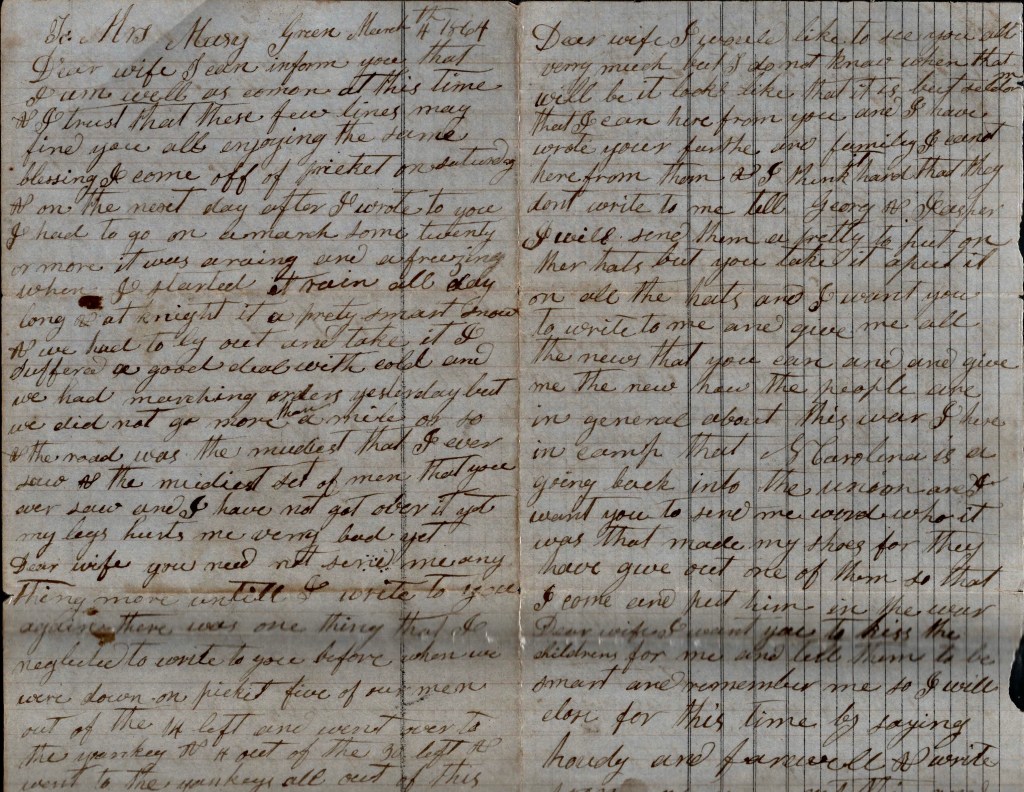 To Mrs Mary Green March 4th 1864
Dear wife I can inform you that
I am well as comon at this time
& I trust that these few lines may
find you all enjoying the same
blessing I come off of pricket on saturday
& on the next day after I wrote to you
I had to go on a march some twenty
or more it was a raing and a freezing
when I started it rain all day
long & at knight it a prety smart snow
& we had to ly out and take it I
suffered a good deal with cold and
we had marching orders yesterday but
we did not go more than a mile or so
& the road was the mudiest that I ever
saw & the mudiest set of men that you
ever saw and I have not got over it yet
my legs hurts me verry bad yet
Dear wife you need not send me any
thing more untill I write to you
again there was one thing that I
neglected to write to you before when we
were down on picket five of our men
out of the 14 left and went over to
the yankey & 4 out of the 30 left &
went to the yankeys all out of this
Dear wife I would like to see you all
verry much but I do not know when that
will be it looks like that it is but seldom
that I can here from you and I have
wrote your and family I canot
here from them & I think it hard that they
dont write to me tell Georg &
I will send them a pretty to put on
ther hats but you take it apurt it
on all the hats and I want you
to write to me and give me all
the news that you can and and give
me the new how the people are
in general about this war I here
in camp that N Carolina is a
going back into the unoon and I
want you to send me word who it
was that made my shoes for they
have give out one of them so that
I come and put him in the war
Dear wife I want you to kiss the
children for me and tell them to be
smart and remember me so I will
close for this time by saying
howdy and farewell & write